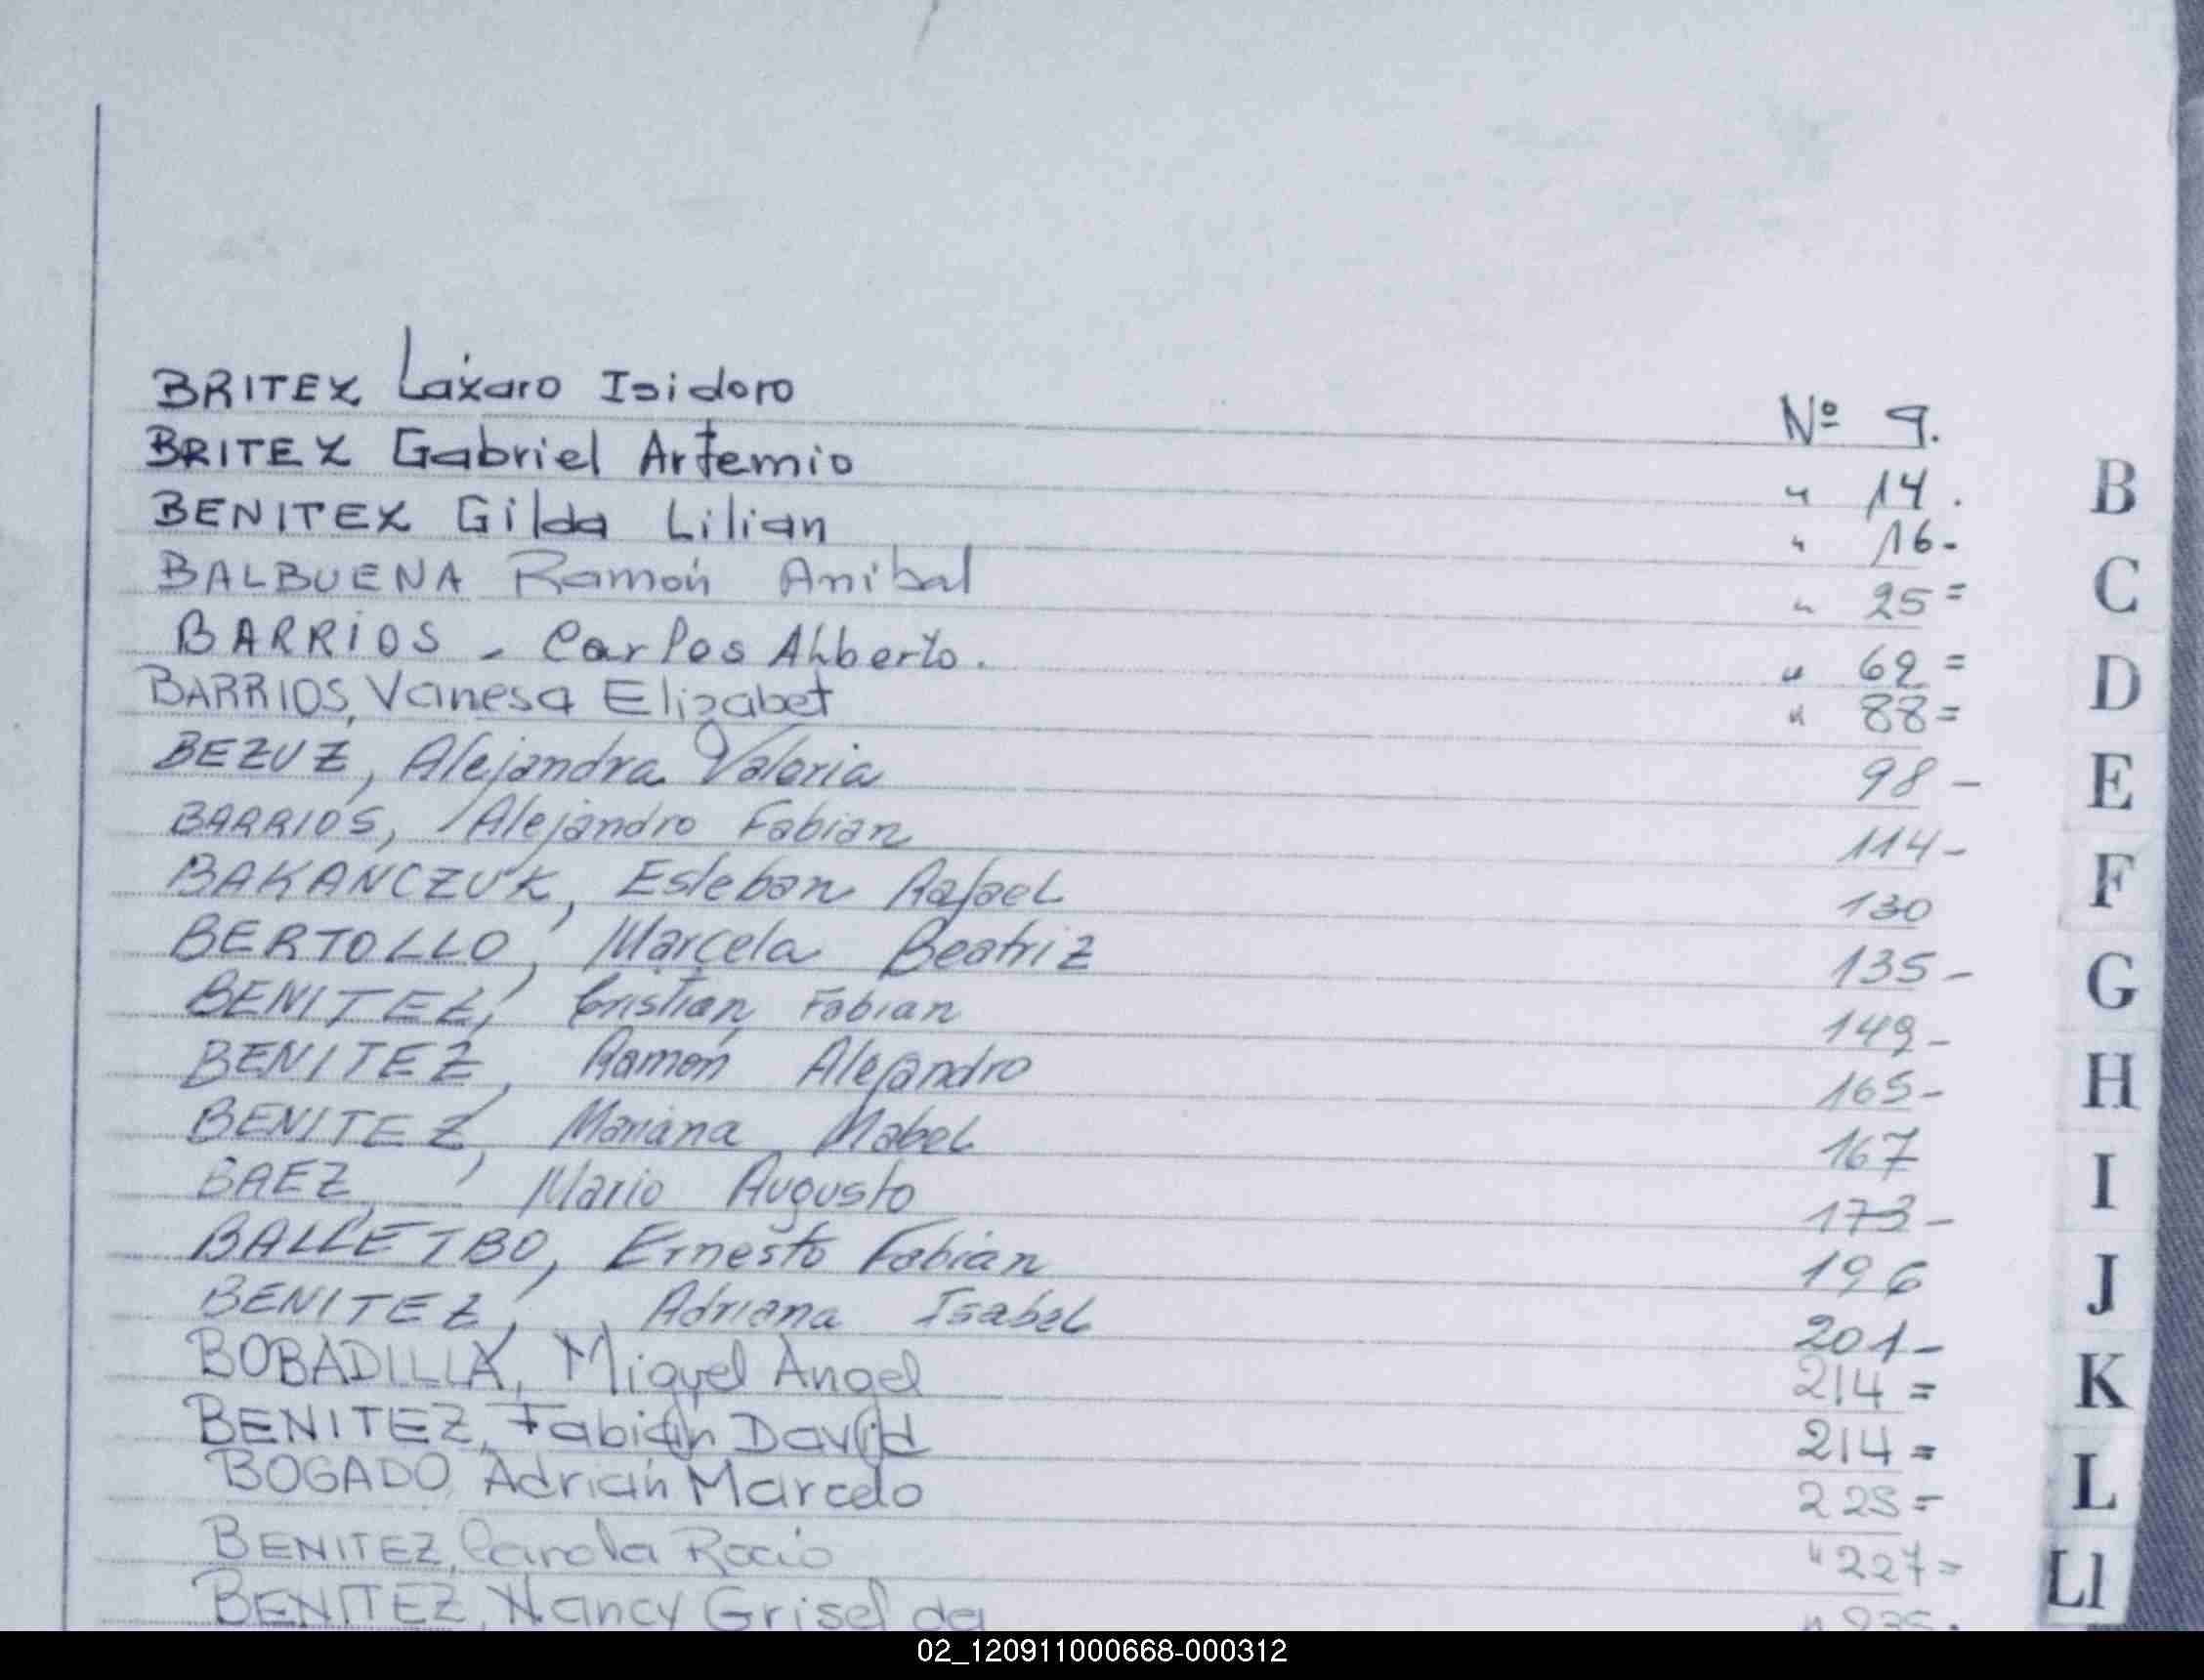 BRITEZ Lázaro Isidoro Nº 9.
BRITEZ Gabriel Artemio " 14.
BENITEZ Gilda Lilian " 16-
BALBUENA Ramón Anibal " 25=
BARRIOS - Carlos Alberto. " 62=
BARRIOS, Vanesa Elizabet " 88=
BEZUZ, Alejandra Valeria 98-
BARRIOS, Alejandro Fabian 114-
BAKANCZUK, Esteban Rafael 130
BERTOLLO, Marcela Beatriz 135-
BENITEZ, Cristian Fabian 149-
BENITEZ, Ramón Alejandro 165-
BENITEZ, Mariana Mabel 167
BAEZ, Mario Augusto 173-
BALLETBO, Ernesto Fabian 196
BENITEZ, Adriana Isabel 201-
BOBADILLA, Miguel Angel 214=
BENITEZ, Fabián David 214=
BOGADO, Adrián Marcelo 225=
BENITEZ, Carola Rocio " 227=
BENITEZ, Nancy Griselda
B
C
D
E
F
G
H
I
J
K
L
Ll
02_120911000668-000312